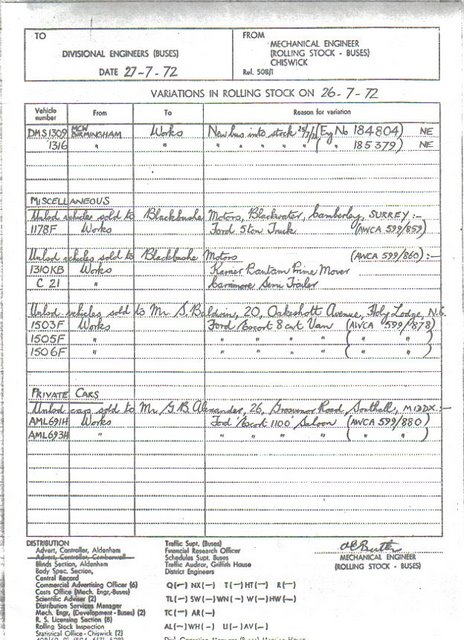 TO
DIVISIONAL ENGINEERS (BUSES)
DATE 27-7-72
FROM
MECHANICAL ENGINEER
(ROLLING STOCK - BUSES)
CHISWICK
Ref. 508/1
VARIATIONS IN ROLLING STOCK ON 26-7-72
Vehicle number From To Reason for variation
DMS1309 MCW BIRMINGHAM Works New bus into stock (Eng No 184804) NE
1316 " " " " " " ( " " 185379) NE
MISCELLANEOUS
Unlsd vehicles sold to Blackbushe Motors, Blackwater, Camberley, SURREY :-
1178F Works Ford 5 ton Truck (AWCA 599/859)
Unlsd vehicles sold to Blackbushe Motors (AWCA 599/860) :-
1310KB Works Karrier Bantam Prime Mover
C 21 " Carrimore Semi Trailer
Unlsd vehicles sold to Mr S. Baldwin, 20, Oakeshott Avenue, Holy Lodge, N.6.
1503F Works Ford Escort 8 cwt Van (AWCA 599/878)
1505F " " " " " ( " " )
1506F " " " " " ( " " )
PRIVATE CARS
Unlsd cars sold to Mr G.B. Alexander, 26, Grosvenor Road, Southall, MIDDX :-
AML691H Works Ford Escort 1100 Saloon (AWCA 599/880)
AML693H " " " " " ( " " )
DISTRIBUTION
Advert. Controller, Aldenham
Advert. Controller, Camberwell
Blinds Section, Aldenham
Body Spec. Section,
Central Record
Commercial Advertising (6)
Costs Office (Mech. Engr.-Buses)
Scientific Adviser (2)
Distribution Services Manager
Mech. Engr. (Development - Buses) (2)
R. S. Licensing Section (8)
Rolling Stock Inspection
Statistical Office - Chiswick (2)
Traffic Supt. (Buses)
Financial Research Officer
Schedules Supt. Buses
Traffic Auditor, Griffith House
District Engineers
Q(—) NX(—) T(—) HT(—) R(—)
TL(—) SW(—) WN(—) W(—) HW(—)
TC(—) AR(—)
AL(—) WH(—) U(—) AV(—)
MECHANICAL ENGINEER
(ROLLING STOCK - BUSES)